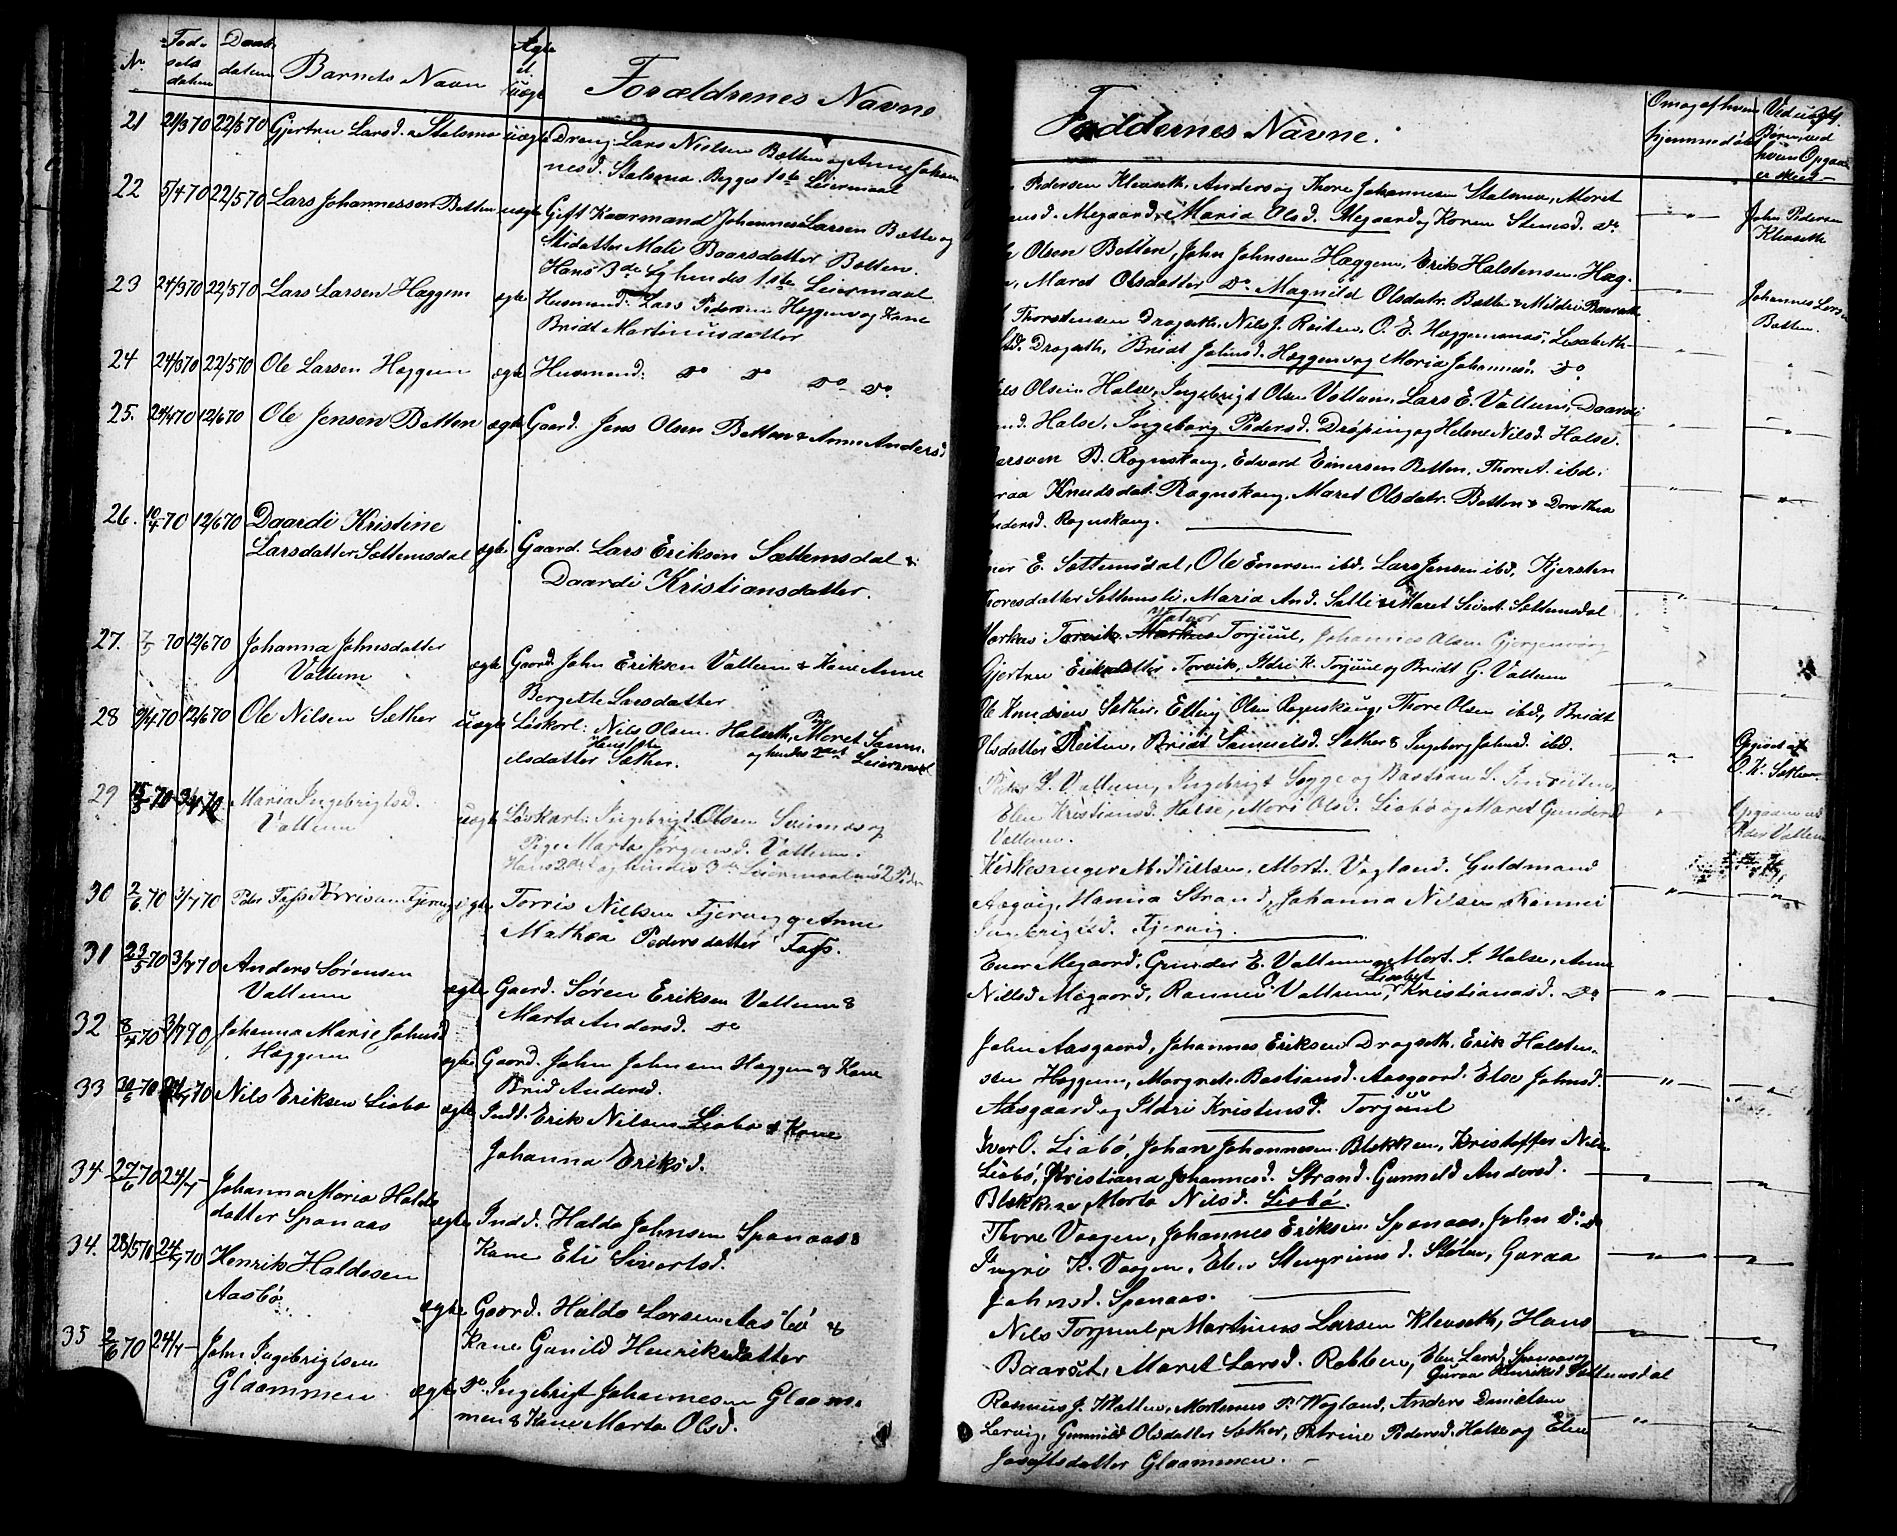 No. Fød- Daab. Barnets Navn Ægte Forældrenes Navne
sels datum et
datum uægt
21 21/3 70 22/5 70 Gjertru Larsd. Stalsma uægte Dreng: Lars Nielsen Botten og Anne Johan
nesd. Stalsma. Begges 1ste Leiermaal
22 5/4 70 22/5 70 Lars Johannesson Botten uægte Gift Kaarmand Johannes Larsen Botte og
Mari Baarsdatter Botten.
Hans 3de & hendes 1ste Leiermaal
23 24/3 70 22/5 70 Lars Larsen Hæggem ægte Husmand: Lars Pedersen Hæggem og Kone
Bridt Martinusdatter
24 24/3 70 22/5 70 Ole Larsen Hæggem ægte Husmand: Do Do Do Do
25. 24/4 70 12/6 70 Ole Jensen Botten ægte Gaard. Jens Olsen Botten & Anne Andersd
26. 10/4 70 12/6 70 Daardi Kristine
Larsdatter Sættemsdal ægte Gaard. Lars Eriksen Sættemsdal &
Daardi Kristiansdatter.
27. 7/5 70 12/6 70 Johanna Johnsdatter
Vattum ægte Gaard. John Eriksen Vattum & Kone Anne
Bergitte Larsdatter
28 9/4 70 12/6 70 Ole Nilsen Sæther uægte Løskarl: Nils Olsen Halseth, Pi Moret Sam-
elsdatter Sæther. Hans 1ste og hendes 2det Leiermaal
29 15/5 70 3/7 70 Maria Ingebrigtsd.
Vattum uægte Løskarl: Ingebrigt Olsen Svinnes og
Pige Marta Jørgensd. Vattum.
Hans 2det og hendes 3die Leiermaal
30 2/6 70 3/7 70 Peder Fafs Torrisen Fjervig ægte Torris Nielsen Fjervig og Anne
Mathea Pedersdatter Fafs.
31 23/5 70 3/7 70 Anders Sørensen
Vattum ægte Gaard. Søren Eriksen Vattum &
Marta Andersd. Do
32 8/4 70 3/7 70 Johanna Marie Johnsd
Hæggem ægte Gaard. John Johnsen Hæggem & Kone
Brid Andersd.
33 30/6 70 24/7 70 Nils Eriksen Liabø ægte Indt. Erik Nilsen Liabø & Kone
Johanna Eriksd.
34 27/6 70 24/7 - Johanna Maria Halds
datter Spanaas ægte Indd. Haldo Johnsen Spanaas &
Kone Eli Sivertsd.
34. 28/5 70 24/7 70 Henrik Haldosen
Aasbø ægte Gaard. Haldo Larsen Aasbø &
Kone Gunild Henriksdatter
35 2/6 70 24/7 - John Ingebrigtsen
Glaammen ægte Do Ingebrigt Johannesen Glaam-
men & Kone Marta Olsd.
Faddernes Navne. Omag af hvem Ved uægte
hjemmedøbt Børn, ved
hvem Opgaa
er skeet —
Pedersen Klevseth, Anders og Thore Johannesen Stalsma, Moret
Megaard, Maria Olsd. Megaard og Karen Stensd. Do John Pedersen
Klevseth
Olsen Botten, John Johnsen Hæggem, Erik Halstensen Hæg-
Maret Olsdatter Do Magnild Olsdatr. Botten & Johannes Larsen
Botten.
Thorstensen Dragseth, Nils J. Reiten, O. E. Hæggemsnæs, Lisabeth
Dragseth, Bridt Johnsd. Hæggem og Maria Johannesd. Do
Olsen Halse, Ingebrigt Olsen Vattum, Lars E. Vattum, Daardi
Halse, Ingeborg Pedersd. Drøping og Helene Nilsd. Halse.
B. Rognskaug, Edvard Einersen Botten, Thore A. ibd.
Knudsdat. Rognskaug, Maret Olsdatr. Botten & Dorothea
Andersd. Rognskaug.
E. Sættemsdal, Ole Enersen ibd. Lars Jensen ibd. Kjersten
Thoresdatter Sættemsli, Maria And. Sætli & Maret Sivert. Sættemsdal
Markus Torvik, Halvor Torjuul, Johannes Olsen
Gjertru Eriksdatter Torvik, Ildri K. Torjuul og Bridt G. Vattum
Ole Knudsen Sæther, Elling Olsen Rognskaug, Thore Olsen ibd, Bridt
Olsdatter Reiten, Bridt Samuelsd. Sæther & Ingeborg Johnsd. ibd. Opgivet af
O. K. Sæther
Peder L. Vattum, Ingebrigt Sogge og Bastian L.
Elen Kristiansd. Halse, Mari Olsd. Liabø og Maret Gundersd Opgaven ved
Peder Vattum
Vattum.
Kirkesanger M. Nielsen, Mort. Vogland, Guldmand
Aagvig, Hanna Strand, Johanna Nilsen,
Ingebrigtsd. Fjervig.
Ener Megaard, Gunder E. Vattum, Mort. J. Halse, Anne
Nilsd Megaard, Rannei O. Vattum, Lisabet Kristiansd. Do
John Aasgaard, Johannes Eriksen Dragseth, Erik Halsten-
sen Hæggem, Margrete Bastiansd. Aasgaard, Else Johnsd.
Aasgaard og Ildri Kristensd. Torjuul
Iver O. Liabø, Johan Johannesen Blekken, Kristoffer Nils
Liabø, Kristiana Johannesd. Strand, Gunnild Andersd.
Blekken, Marta Nilsd. Liabø.
Thore Vaagen, Johannes Eriksen Spanaas, John Do Do
Ingri K. Vaagen, Elen Stengrimsd. Stølen, Guraa
Johnsd. Spanaas.
Nils Torjuul, Martinus Larsen Klevseth, Hans
Baarset, Maret Larsd. Robben, Elen Larsd. Spanaas og
Guraa Henriksd Sættemsdal
Rasmus J. Watten, Mortenus P. Wogland, Anders Danielsen
Lervig, Gunnild Olsdatter Sæther, Petrine Pedersd. Halse og Elen
Josefsdatter Glaammen.